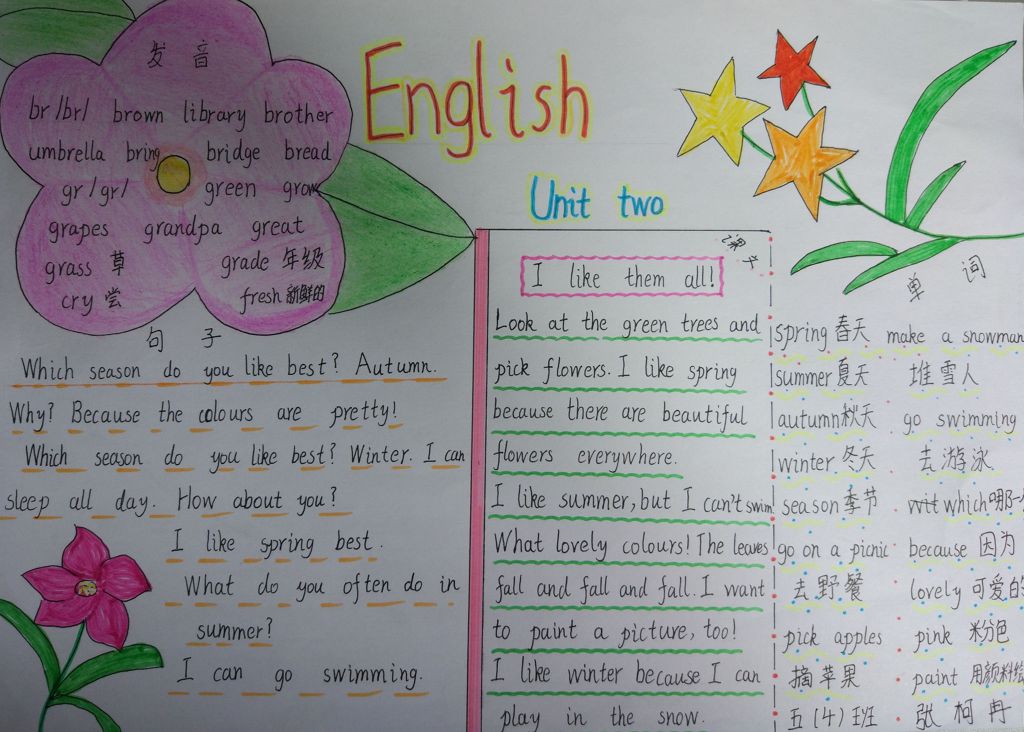 English
Unit two
发 音
br /br/ brown library brother
umbrella bring bridge bread
gr /gr/ green grow
grapes grandpa great
grass 草 grade 年级
cry 尝 fresh 新鲜的
句 子
Which season do you like best? Autumn.
Why? Because the colours are pretty!
Which season do you like best? Winter. I can
sleep all day. How about you?
I like spring best.
What do you often do in
summer?
I can go swimming.
课文
I like them all!
Look at the green trees and
pick flowers. I like spring
because there are beautiful
flowers everywhere.
I like summer, but I can't swim
What lovely colours! The leaves
fall and fall and fall. I want
to paint a picture, too!
I like winter because I can
play in the snow.
单 词
spring 春天 make a snowman
summer 夏天 堆雪人
autumn 秋天 go swimming
winter 冬天 去游泳
season 季节 which 哪一
go on a picnic because 因为
去野餐 lovely 可爱的
pick apples pink 粉色
摘苹果 paint 用颜料绘
五(4)班 张柯冉